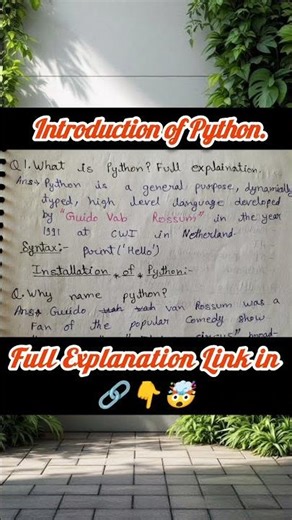 Introduction of Python.
Q1. What is Python? Full explaination.
Ans→ Python is a general purpose, dynamically
typed, high level language developed
by "Guido Vab Rossum" in the year
1991 at CWI in Netherland.
Syntax:- print('Hello')
Installation of Python:-
Q. Why name python?
Ans→ Guido van Rossum was a
Fan of the popular Comedy show
Full Explanation Link in
🔗👇🤯